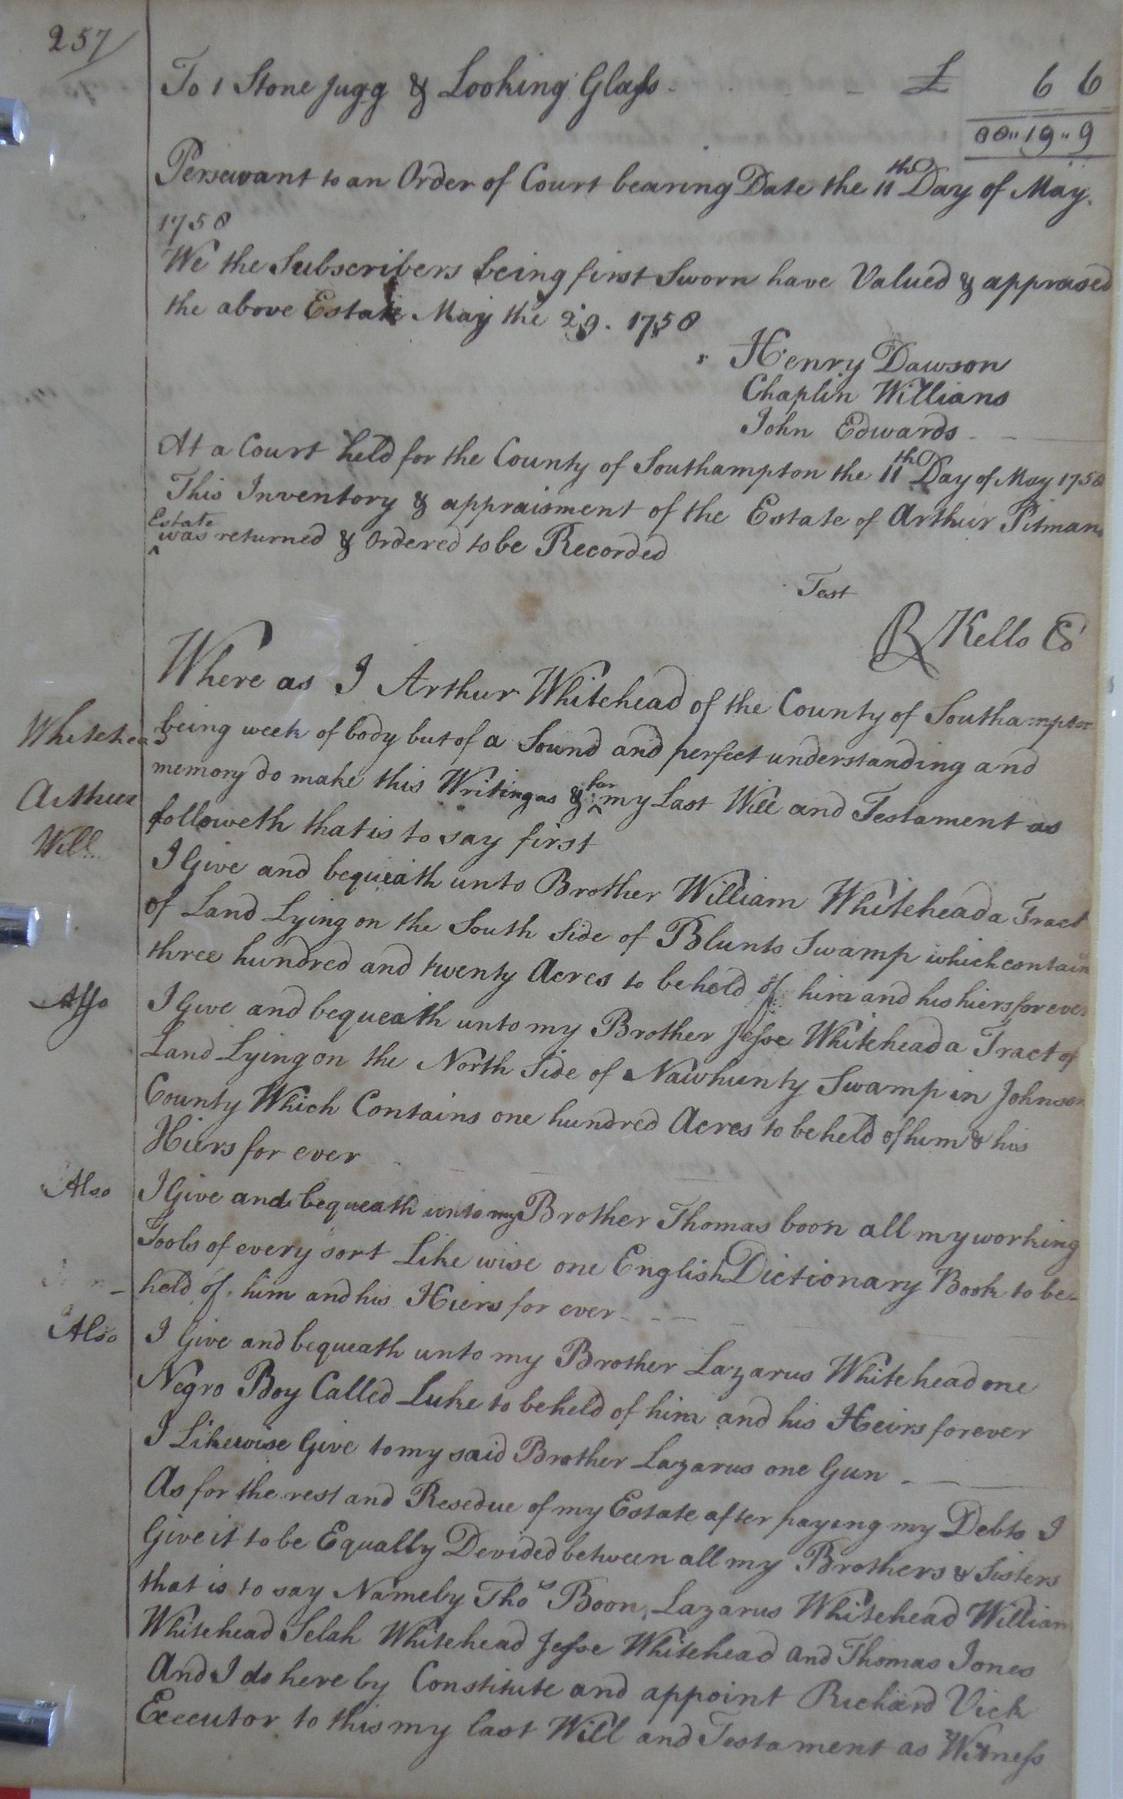 257
To 1 Stone Jugg & Looking Glass - - - £ 6 6
88 " 19 " 9
Persuvant to an Order of Court bearing Date the 11th Day of May.
1758
We the Subscribers being first Sworn have Valued & appraised
the above Estate May the 29. 1758
Henry Dawson
Chaplin Willians
John Edwards - -
At a Court held for the County of Southampton the 11th Day of May 1758
This Inventory & appraisment of the Estate of Arthur Pitmans
Estate
^ was returned & Ordered to be Recorded
Test
R Kello
Where as I Arthur Whitehead of the County of Southampton
Whitehead
being week of body but of a Sound and perfect understanding and
memory do make this Writing as & for my Last Will and Testament as
Arthur
followeth that is to say first
Will
I Give and bequeath unto Brother William Whitehead a Tract
of Land Lying on the South Side of Blunts Swamp which contain
three hundred and twenty Acres to beheld of him and his hiers for ever
Also
I Give and bequeath unto my Brother Jesse Whitehead a Tract of
Land Lying on the North Side of Nawhunty Swamp in Johnson
County Which Contains one hundred Acres to beheld of him & his
Hiers for ever
Also
I Give and bequeath unto my Brother Thomas boon all my working
Tools of every sort Like wise one English Dictionary Book to be
held of him and his Hiers for ever - - - -
Also
I Give and bequeath unto my Brother Lazarus Whitehead one
Negro Boy Called Luke to beheld of him and his Heirs forever
I Likewise Give to my said Brother Lazarus one Gun - -
As for the rest and Resedue of my Estate after paying my Debts I
Give it to be Equally Devided between all my Brothers & Sisters
that is to say Nameby Thos Boon, Lazarus Whitehead William
Whitehead Selah Whitehead Jesse Whitehead and Thomas Jones
And I do here by Constitute and appoint Richard Vick
Executor to this my last Will and Testament as Witness